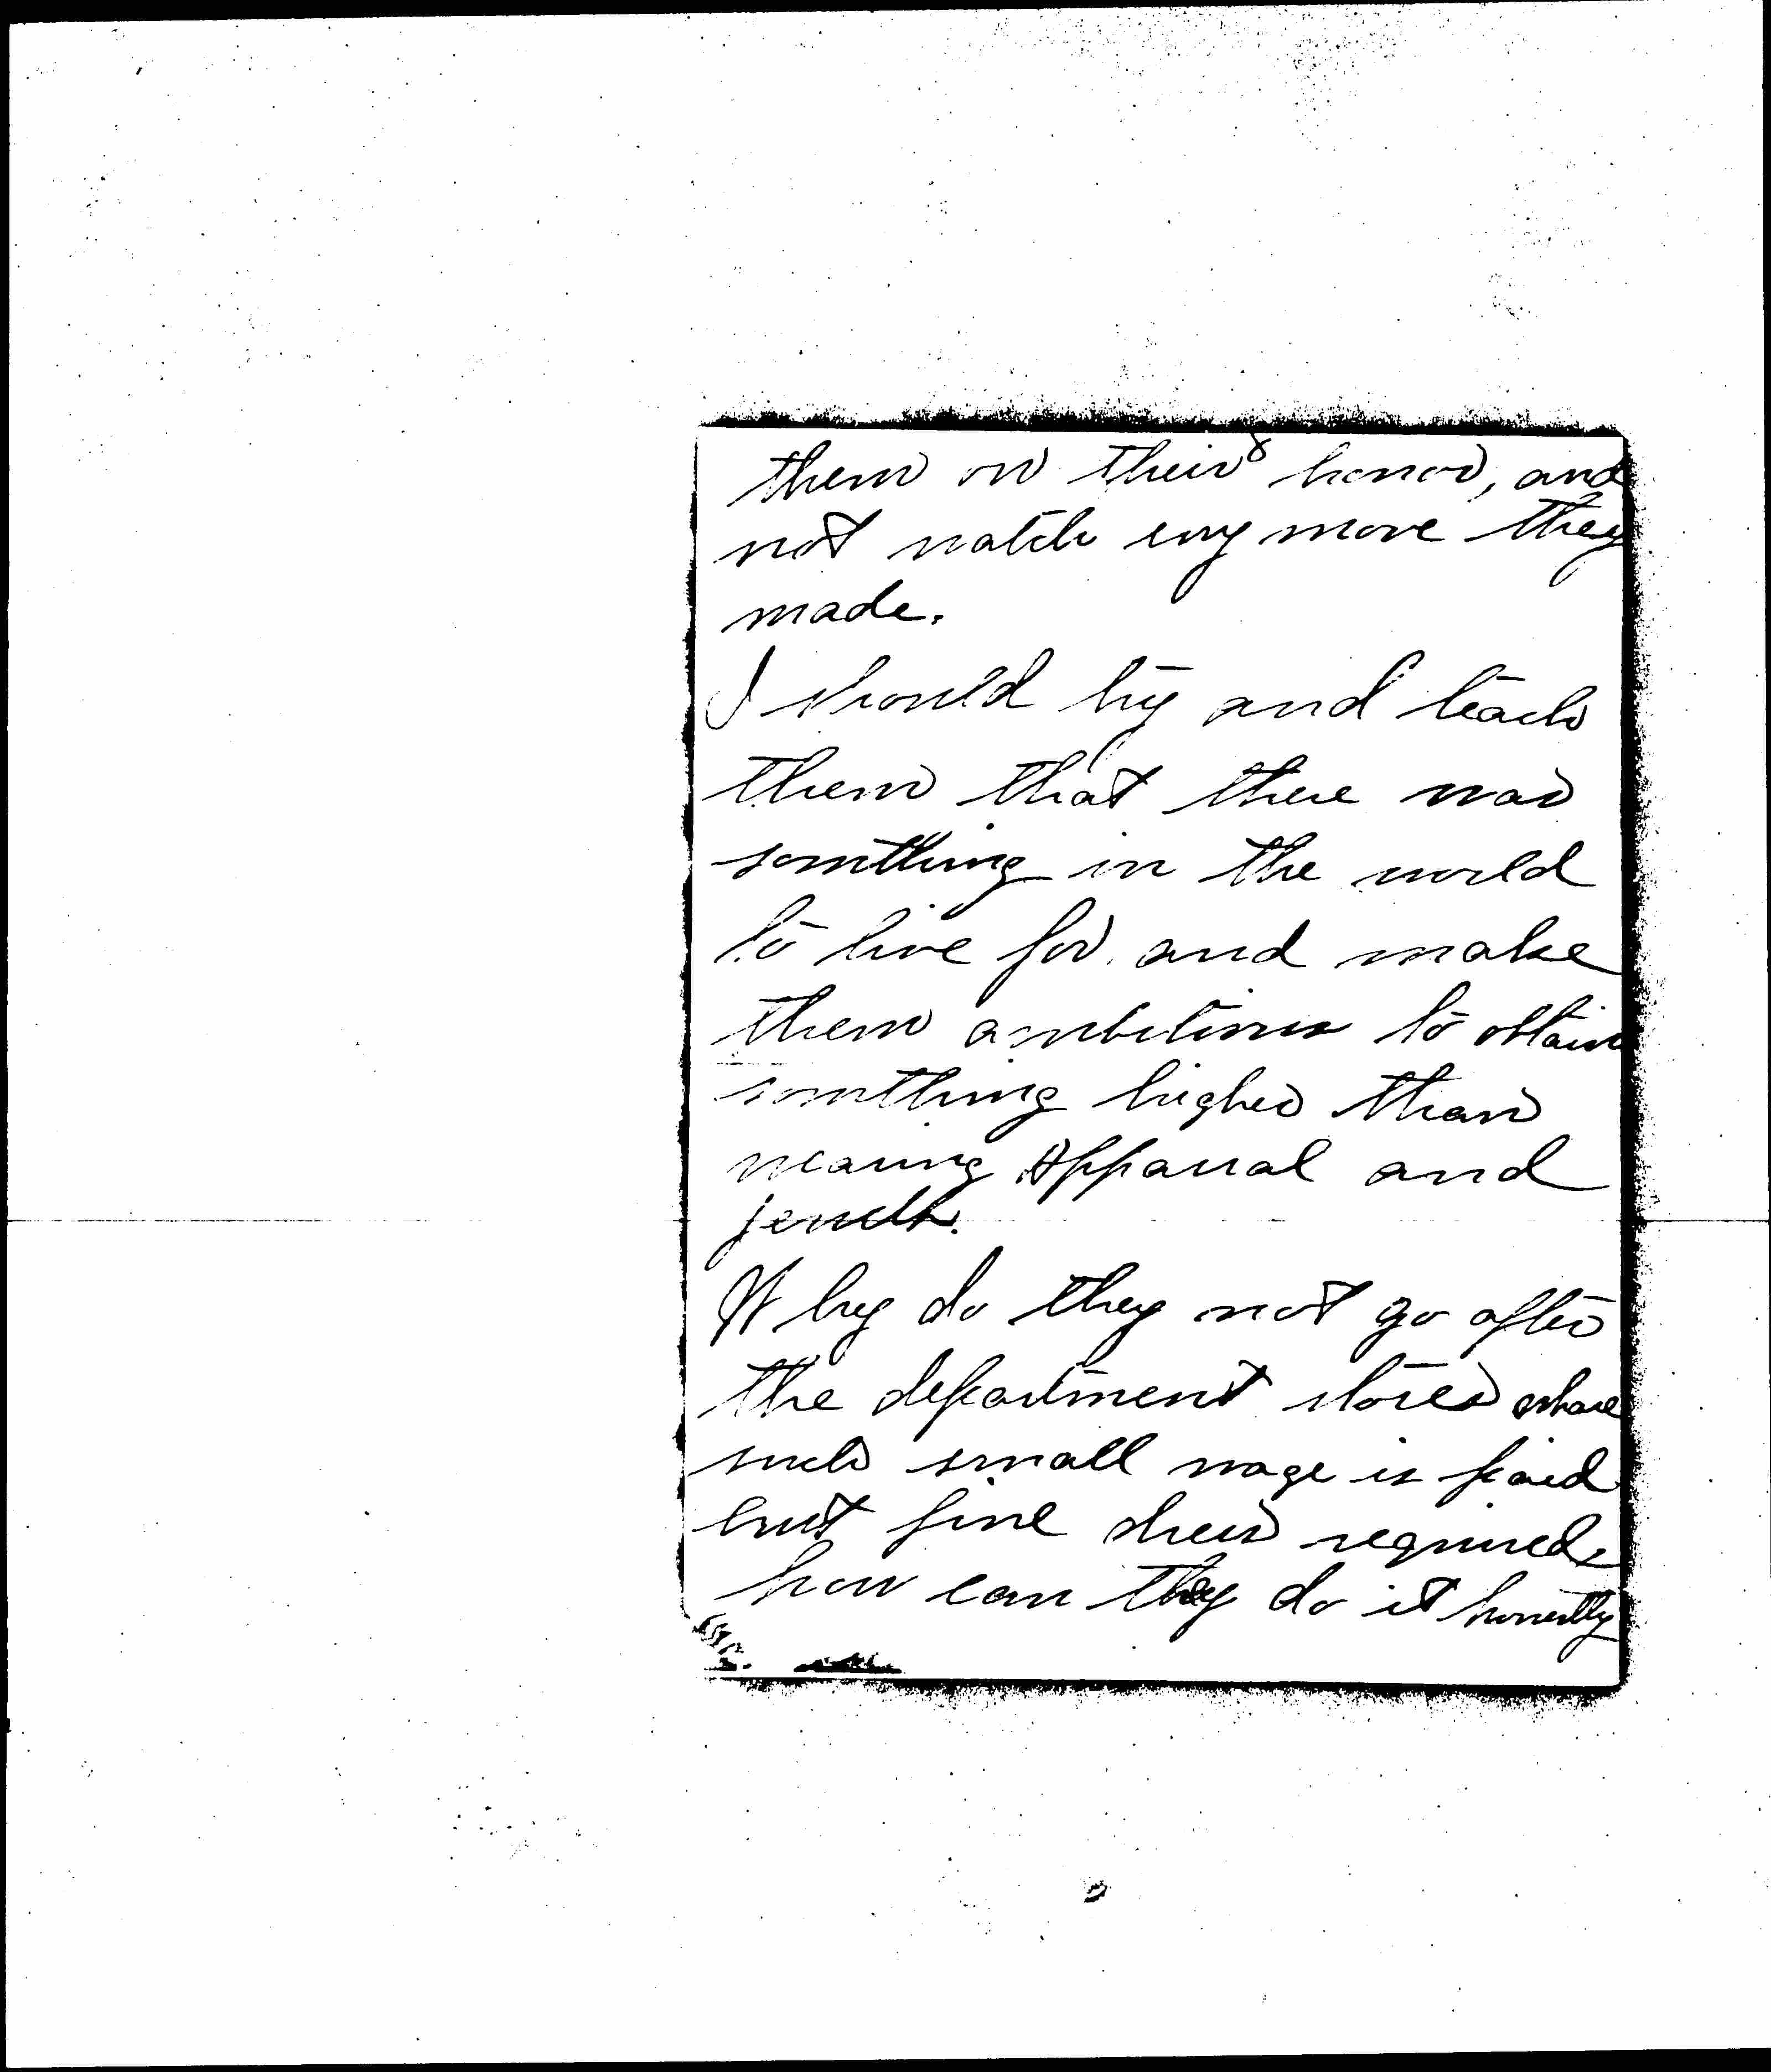 them on their honor, and
not watch evry move they
made.
I should try and teach
them that there was
somthing in the world
to live for and make
them ambitious to obtain
somthing higher than
wearing Apparal and
jewels.
Why do they not go after
the department stores whare
such small wage is paid
but fine dress required,
how can they do it honestly